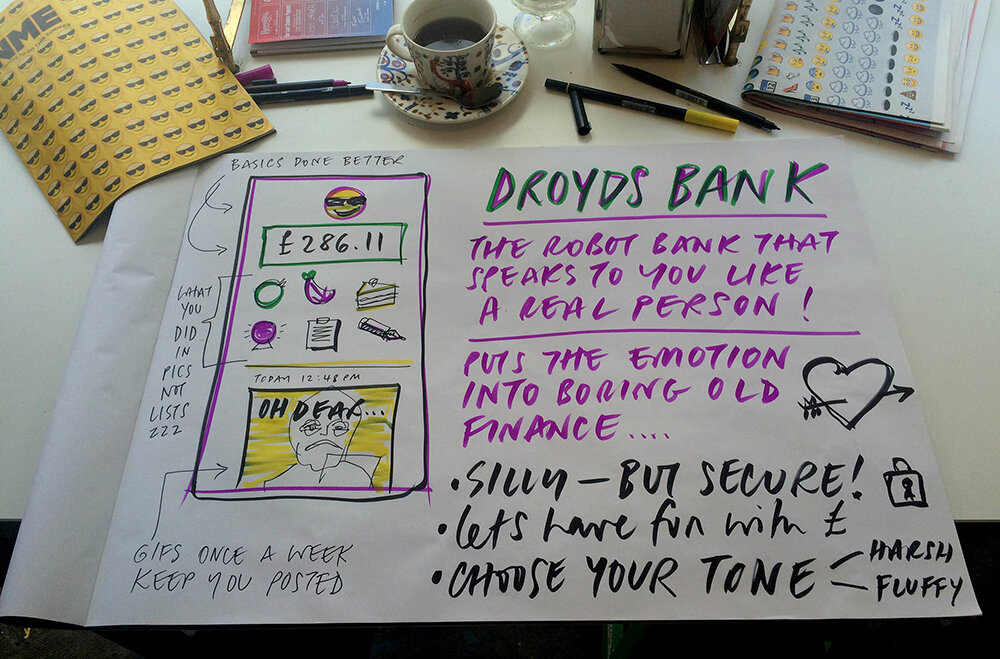 NME
BASICS DONE BETTER
£286.11
WHAT
YOU
DID
IN
PICS
NOT
LISTS
ZZZ
TODAY 12:48 PM
OH DEAR...
GIFS ONCE A WEEK
KEEP YOU POSTED
DROYDS BANK
THE ROBOT BANK THAT
SPEAKS TO YOU LIKE
A REAL PERSON!
PUTS THE EMOTION
INTO BORING OLD
FINANCE....
• SILLY – BUT SECURE!
• Lets have fun with £
• CHOOSE YOUR TONE
HARSH
FLUFFY